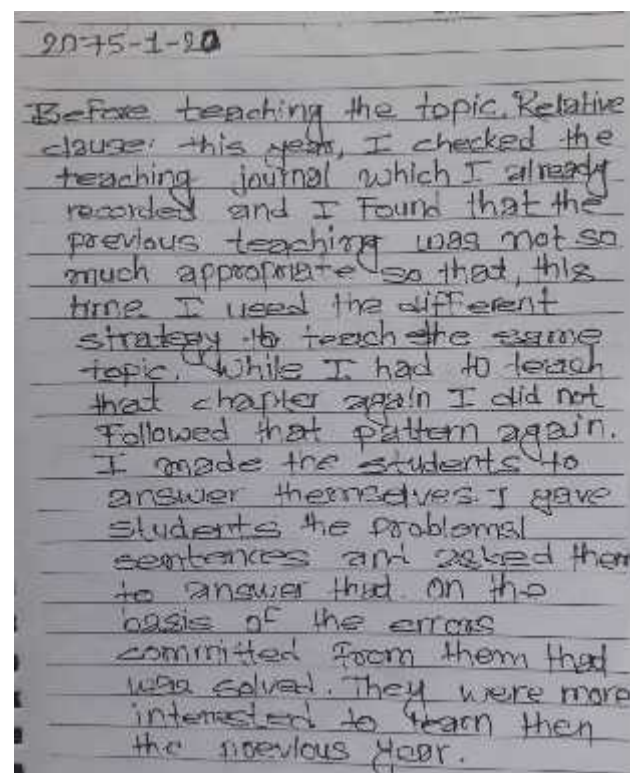 2075-1-20
Before teaching the topic, Relative
clause: this year, I checked the
teaching journal which I already
recorded and I Found that the
previous teaching was not so
much appropriate so that, this
time I used the different
strategy to teach the same
topic. While I had to teach
that chapter again I did not
Followed that pattern again.
I made the students to
answer themselves. I gave
students the problems/
sentences and asked them
to answer that. On the
basis of the errors
committed from them that
was solved. They were more
interested to learn then
the previous year.